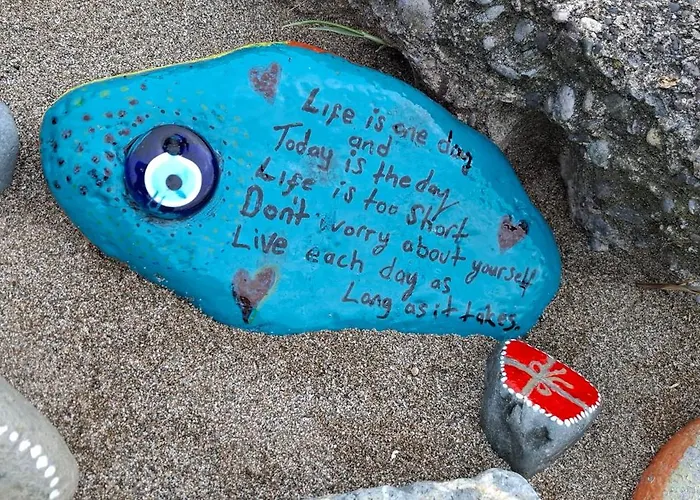 Life is one day
and
Today is the day
Life is too short
Don't worry about yourself
Live each day as
Long as it takes.